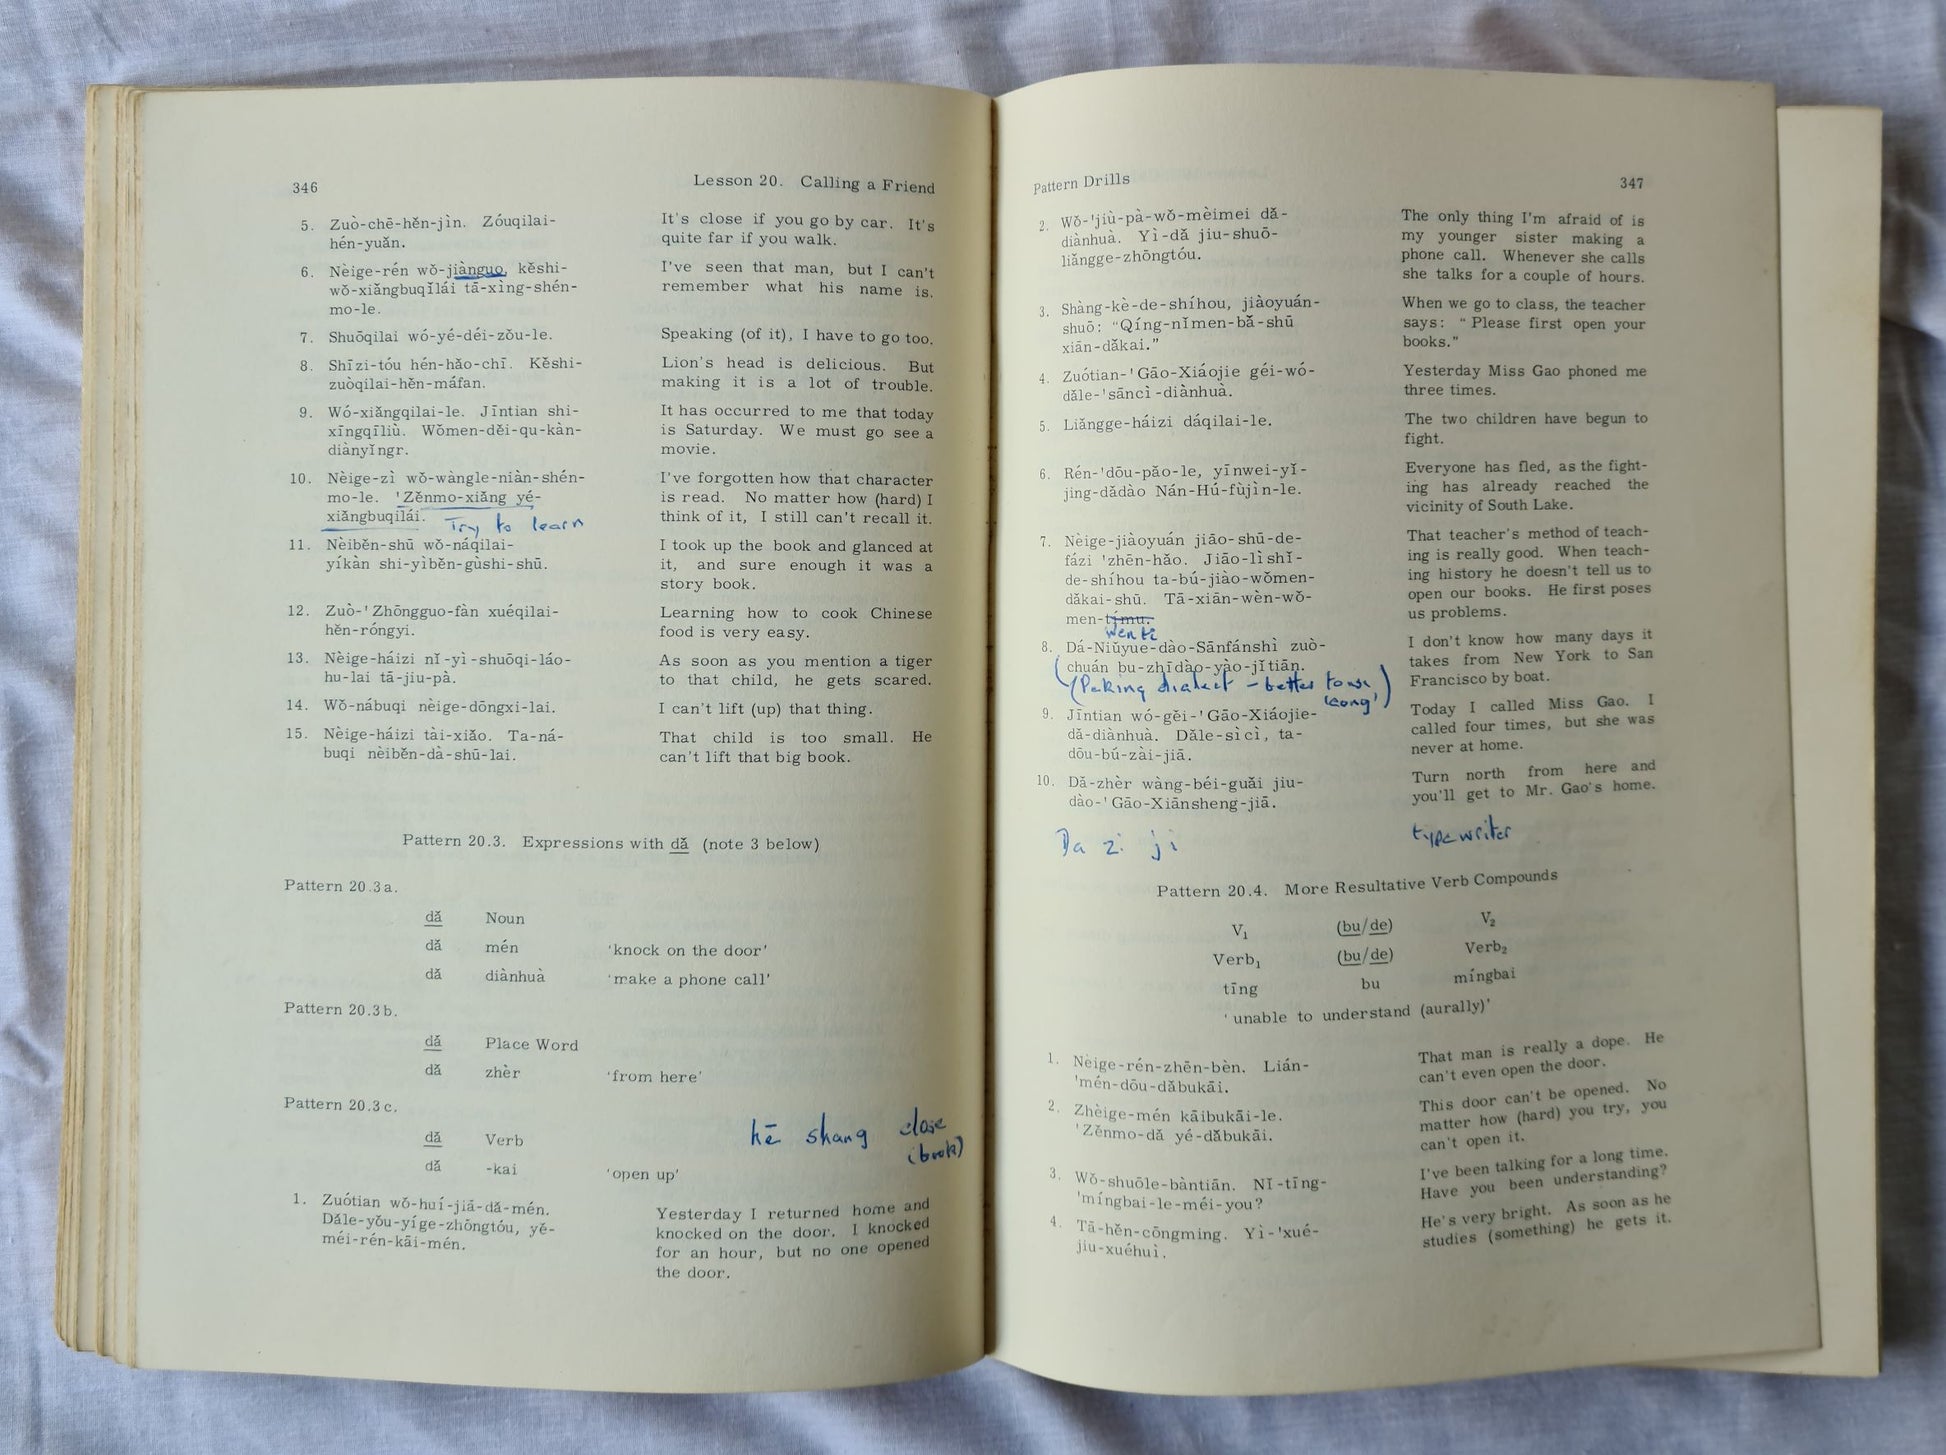 346
Lesson 20. Calling a Friend
5. Zuò-chē-hěn-jìn. Zóuqilai-
hén-yuǎn.
It's close if you go by car. It's
quite far if you walk.
6. Nèige-rén wǒ-jiànguo, kěshi-
wǒ-xiǎngbuqǐlái tā-xìng-shén-
mo-le.
I've seen that man, but I can't
remember what his name is.
7. Shuōqilai wó-yé-déi-zǒu-le.
Speaking (of it), I have to go too.
8. Shīzi-tóu hén-hǎo-chī. Kěshi-
zuòqilai-hěn-máfan.
Lion's head is delicious. But
making it is a lot of trouble.
9. Wó-xiǎngqilai-le. Jīntian shi-
xīngqīliù. Wǒmen-děi-qu-kàn-
diànyǐngr.
It has occurred to me that today
is Saturday. We must go see a
movie.
10. Nèige-zì wǒ-wàngle-niàn-shén-
mo-le. 'Zěnmo-xiǎng yé-
xiǎngbuqilái. Try to learn
I've forgotten how that character
is read. No matter how (hard) I
think of it, I still can't recall it.
11. Nèiběn-shū wǒ-náqilai-
yíkàn shi-yìběn-gùshi-shū.
I took up the book and glanced at
it, and sure enough it was a
story book.
12. Zuò-'Zhōngguo-fàn xuéqilai-
hěn-róngyi.
Learning how to cook Chinese
food is very easy.
13. Nèige-háizi nǐ-yì-shuōqi-láo-
hu-lai tā-jiu-pà.
As soon as you mention a tiger
to that child, he gets scared.
14. Wǒ-nábuqi nèige-dōngxi-lai.
I can't lift (up) that thing.
15. Nèige-háizi tài-xiǎo. Ta-ná-
buqi nèiběn-dà-shū-lai.
That child is too small. He
can't lift that big book.
Pattern 20.3. Expressions with dǎ (note 3 below)
Pattern 20.3a.
dǎ Noun
dǎ mén 'knock on the door'
dǎ diànhuà 'make a phone call'
Pattern 20.3b.
dǎ Place Word
dǎ zhèr 'from here'
Pattern 20.3c.
dǎ Verb
dǎ -kai 'open up'
hē shang close
(book)
1. Zuótian wǒ-huí-jiā-dǎ-mén.
Dǎle-yǒu-yíge-zhōngtóu, yě-
méi-rén-kāi-mén.
Yesterday I returned home and
knocked on the door. I knocked
for an hour, but no one opened
the door.
Pattern Drills
347
2. Wǒ-'jiù-pà-wǒ-mèimei dǎ-
diànhuà. Yì-dǎ jiu-shuō-
liǎngge-zhōngtóu.
The only thing I'm afraid of is
my younger sister making a
phone call. Whenever she calls
she talks for a couple of hours.
3. Shàng-kè-de-shíhou, jiàoyuán-
shuō: "Qíng-nǐmen-bǎ-shū
xiān-dǎkai."
When we go to class, the teacher
says: "Please first open your
books."
4. Zuótian-'Gāo-Xiáojie géi-wó-
dǎle-'sāncì-diànhuà.
Yesterday Miss Gao phoned me
three times.
5. Liǎngge-háizi dáqilai-le.
The two children have begun to
fight.
6. Rén-'dōu-pǎo-le, yīnwei-yǐ-
jing-dǎdào Nán-Hú-fùjìn-le.
Everyone has fled, as the fight-
ing has already reached the
vicinity of South Lake.
7. Nèige-jiàoyuán jiāo-shū-de-
fázi 'zhēn-hǎo. Jiāo-lìshǐ-
de-shíhou ta-bú-jiào-wǒmen-
dǎkai-shū. Tā-xiān-wèn-wǒ-
men-tímu.
wenti
That teacher's method of teach-
ing is really good. When teach-
ing history he doesn't tell us to
open our books. He first poses
us problems.
8. Dá-Niǔyue-dào-Sānfánshì zuò-
chuán bu-zhīdào-yào-jǐtiān.
(Peking dialect - better to use
'cong')
I don't know how many days it
takes from New York to San
Francisco by boat.
9. Jīntian wó-gěi-'Gāo-Xiáojie-
dǎ-diànhuà. Dǎle-sìcì, ta-
dōu-bú-zài-jiā.
Today I called Miss Gao. I
called four times, but she was
never at home.
10. Dǎ-zhèr wàng-béi-guǎi jiu-
dào-'Gāo-Xiānsheng-jiā.
Turn north from here and
you'll get to Mr. Gao's home.
Da zi ji typewriter
Pattern 20.4. More Resultative Verb Compounds
V₁ (bu/de) V₂
Verb₁ (bu/de) Verb₂
tīng bu míngbai
'unable to understand (aurally)'
1. Nèige-rén-zhēn-bèn. Lián-
'mén-dōu-dǎbukāi.
That man is really a dope. He
can't even open the door.
2. Zhèige-mén kāibukāi-le.
'Zěnmo-dǎ yé-dǎbukāi.
This door can't be opened. No
matter how (hard) you try, you
can't open it.
3. Wǒ-shuōle-bàntiān. Nǐ-tīng-
'míngbai-le-méi-you?
I've been talking for a long time.
Have you been understanding?
4. Tā-hěn-cōngming. Yì-'xué-
jiu-xuéhuì.
He's very bright. As soon as he
studies (something) he gets it.